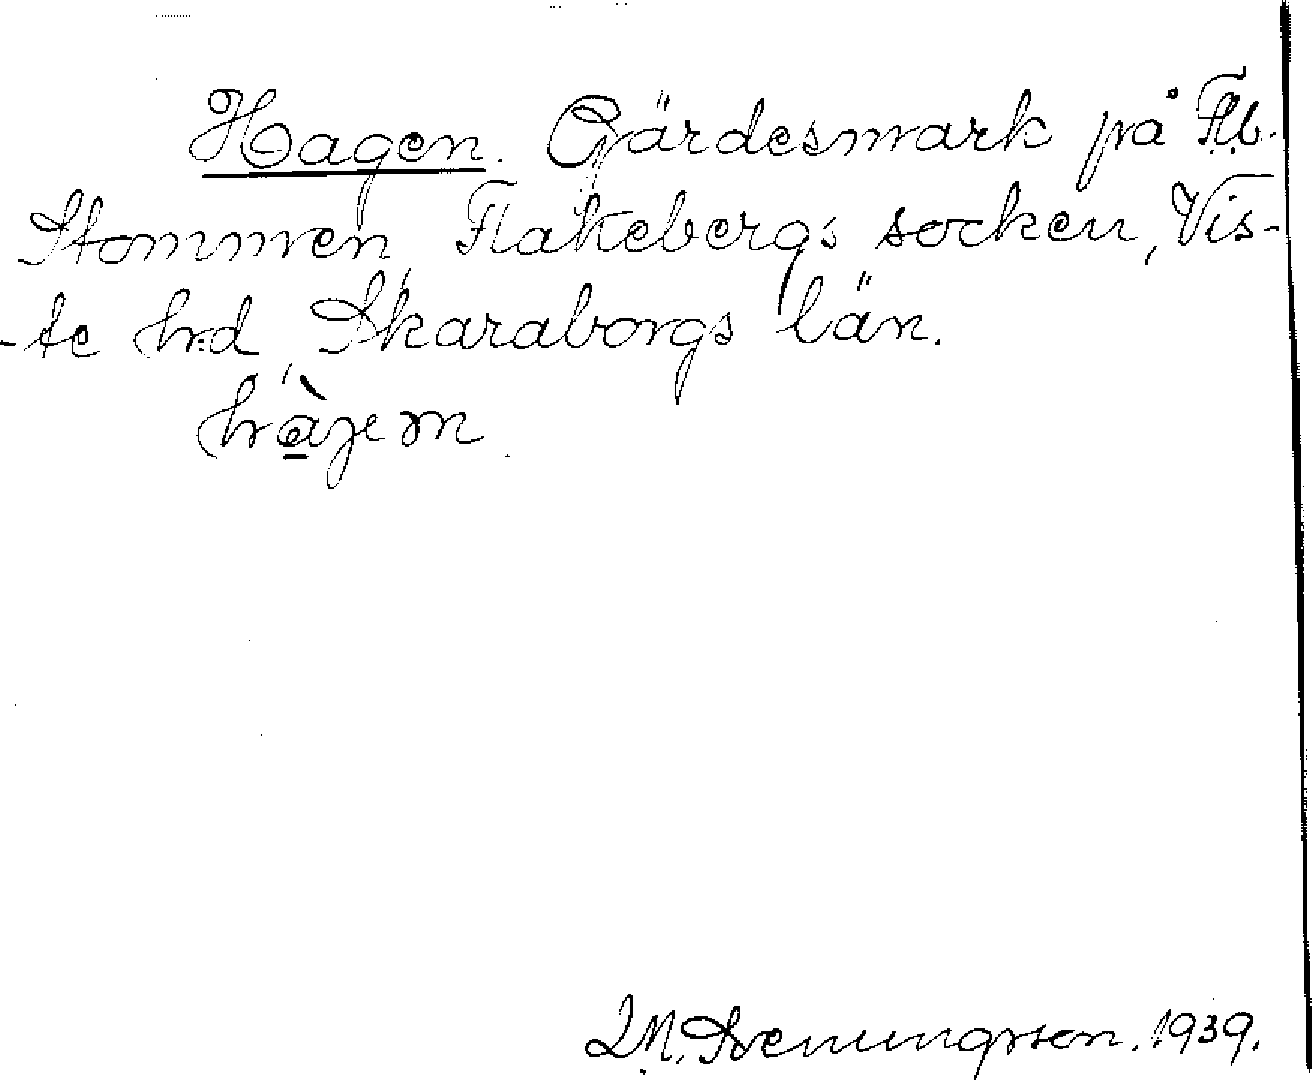 Hagen. Gärdesmark på Flb.
Stommen, Flakebergs socken, Vis-
-te hrd, Skaraborgs län.
hàjem
1939.